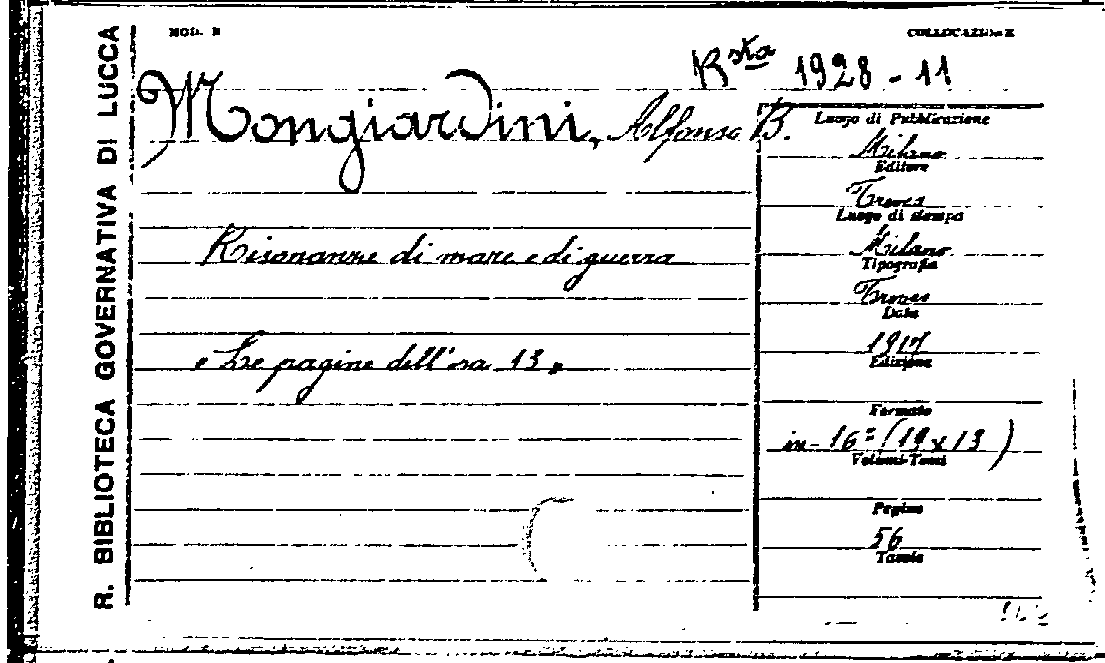 R. BIBLIOTECA GOVERNATIVA DI LUCCA
MOD. B
COLLOCAZIONE
Bsta 1928-11
Mongiardini, Alfonso B.
Risonanze di mare e di guerra
« Le pagine dell'ora 13 »
Luogo di Pubblicazione
Milano
Editore
Treves
Luogo di stampa
Milano
Tipografia
Treves
Data
1917
Edizione
Formato
in-16º (19 x 13)
Volumi-Tomi
Pagine
56
Tavole